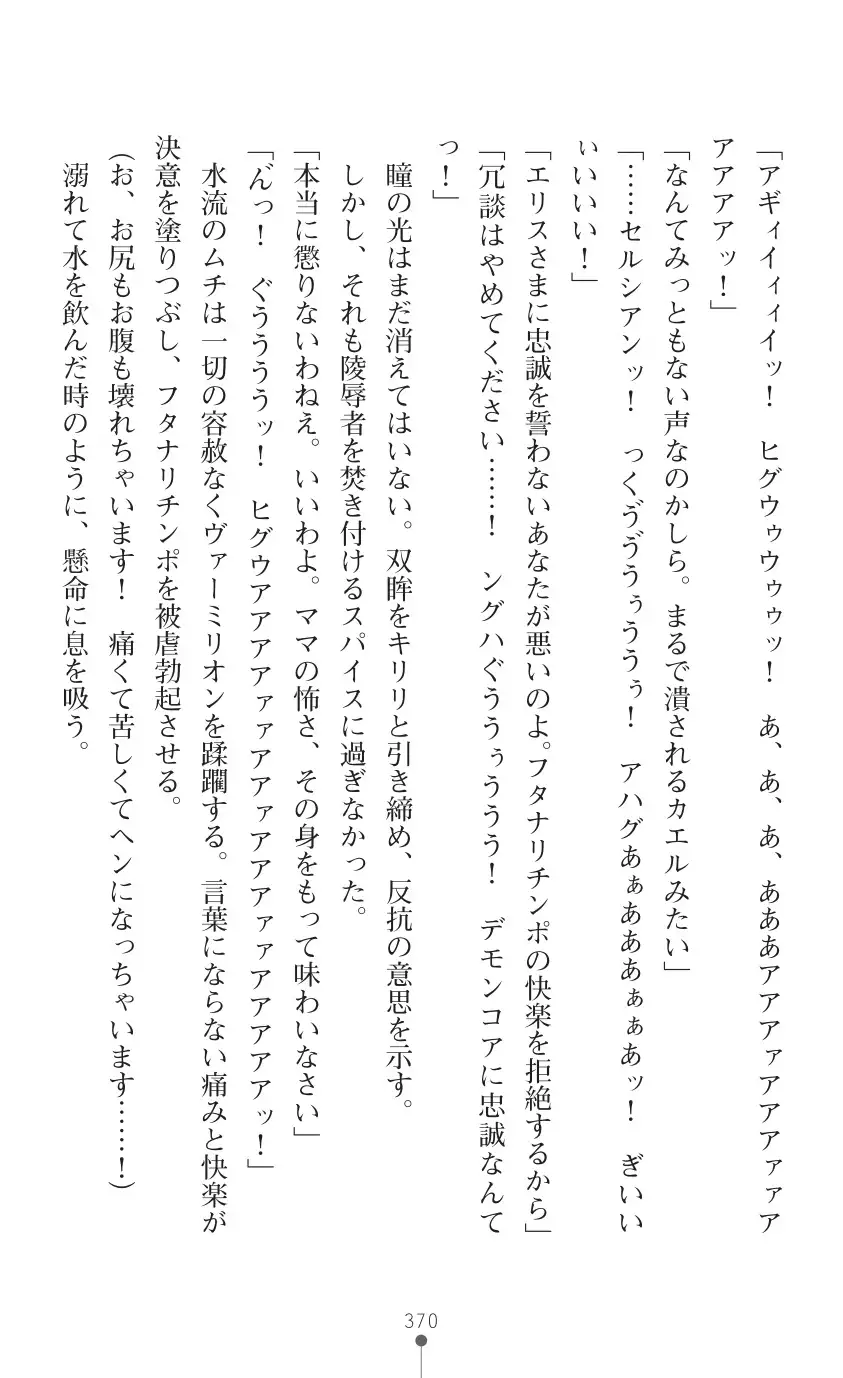 「アギィイィィイッ！　ヒグウゥウゥゥッ！　あ、あ、あ、あああアアアァアアアアァァア
アアアアッ！」
「なんてみっともない声なのかしら。まるで潰されるカエルみたい」
「……セルシアンッ！　っくう゛う゛うぅううぅ！　アハグあぁあああぁぁあッ！　ぎいい
ぃいいい！」
「エリスさまに忠誠を誓わないあなたが悪いのよ。フタナリチンポの快楽を拒絶するから」
「冗談はやめてください……！　ングハぐううぅううう！　デモンコアに忠誠なんて
っ！」
瞳の光はまだ消えてはいない。双眸をキリリと引き締め、反抗の意思を示す。
しかし、それも陵辱者を焚き付けるスパイスに過ぎなかった。
「本当に懲りないわねえ。いいわよ。ママの怖さ、その身をもって味わいなさい」
「ん゛っ！　ぐううううッ！　ヒグウアアアアァァアアァアアアアァァアアアアアッ！」
水流のムチは一切の容赦なくヴァーミリオンを蹂躙する。言葉にならない痛みと快楽が
決意を塗りつぶし、フタナリチンポを被虐勃起させる。
（お、お尻もお腹も壊れちゃいます！　痛くて苦しくてヘンになっちゃいます……！）
溺れて水を飲んだ時のように、懸命に息を吸う。
370